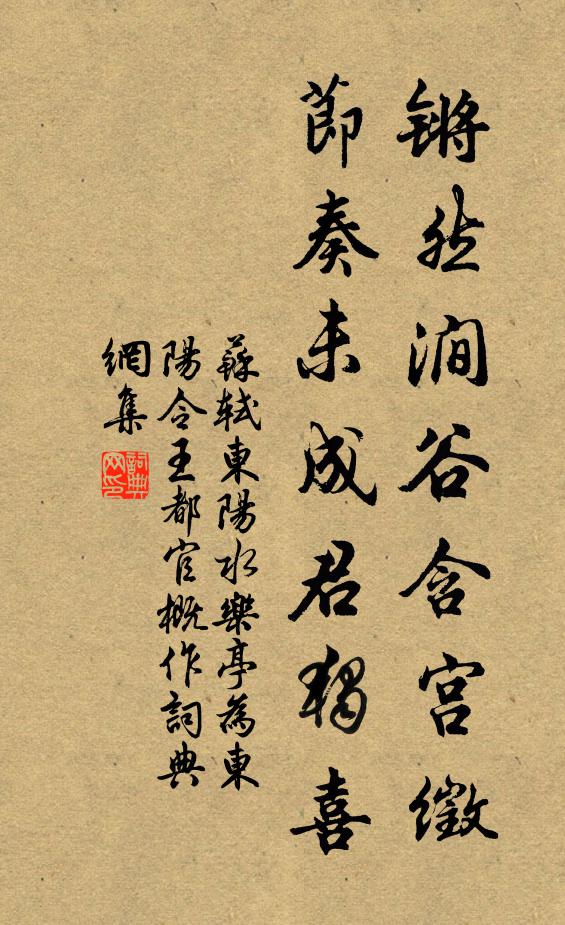 锵然澗谷含宮徵
節奏未成君獨喜
蘇軾東陽水樂亭爲東
陽令王都官概作詞典
網集
詞典網印